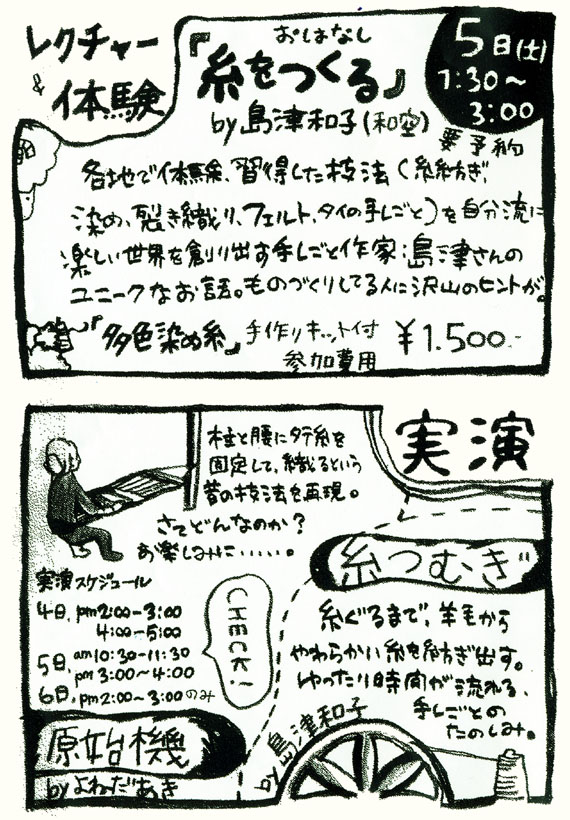 レクチャー
&
体験
おはなし
『糸をつくる』
by 島津和子(和空)
5日(土)
1:30〜
3:00
要予約
各地で体験、習得した技法(糸紡ぎ、
染め、裂き織り、フェルト、タイの手しごと)を自分流に
楽しい世界を創り出す手しごと作家:島津さんの
ユニークなお話。ものづくりしてる人に沢山のヒントが。
『多色染め糸』手作りキット付
参加費用
¥1.500.-
実演
柱と腰にタテ糸を
固定して、織るという
昔の技法を再現。
さてどんなのか?
お楽しみに・・・・・。
実演スケジュール
4日、pm2:00-3:00
4:00-5:00
5日、am10:30-11:30
pm 3:00〜4:00
6日、pm2:00〜3:00のみ
CHECK!
原始機
by よねだあき
糸つむぎ
糸ぐるまで、羊毛から
やわらかい糸を紡ぎ出す。
ゆったり時間が流れる、
手しごとの
たのしみ。
by 島津和子